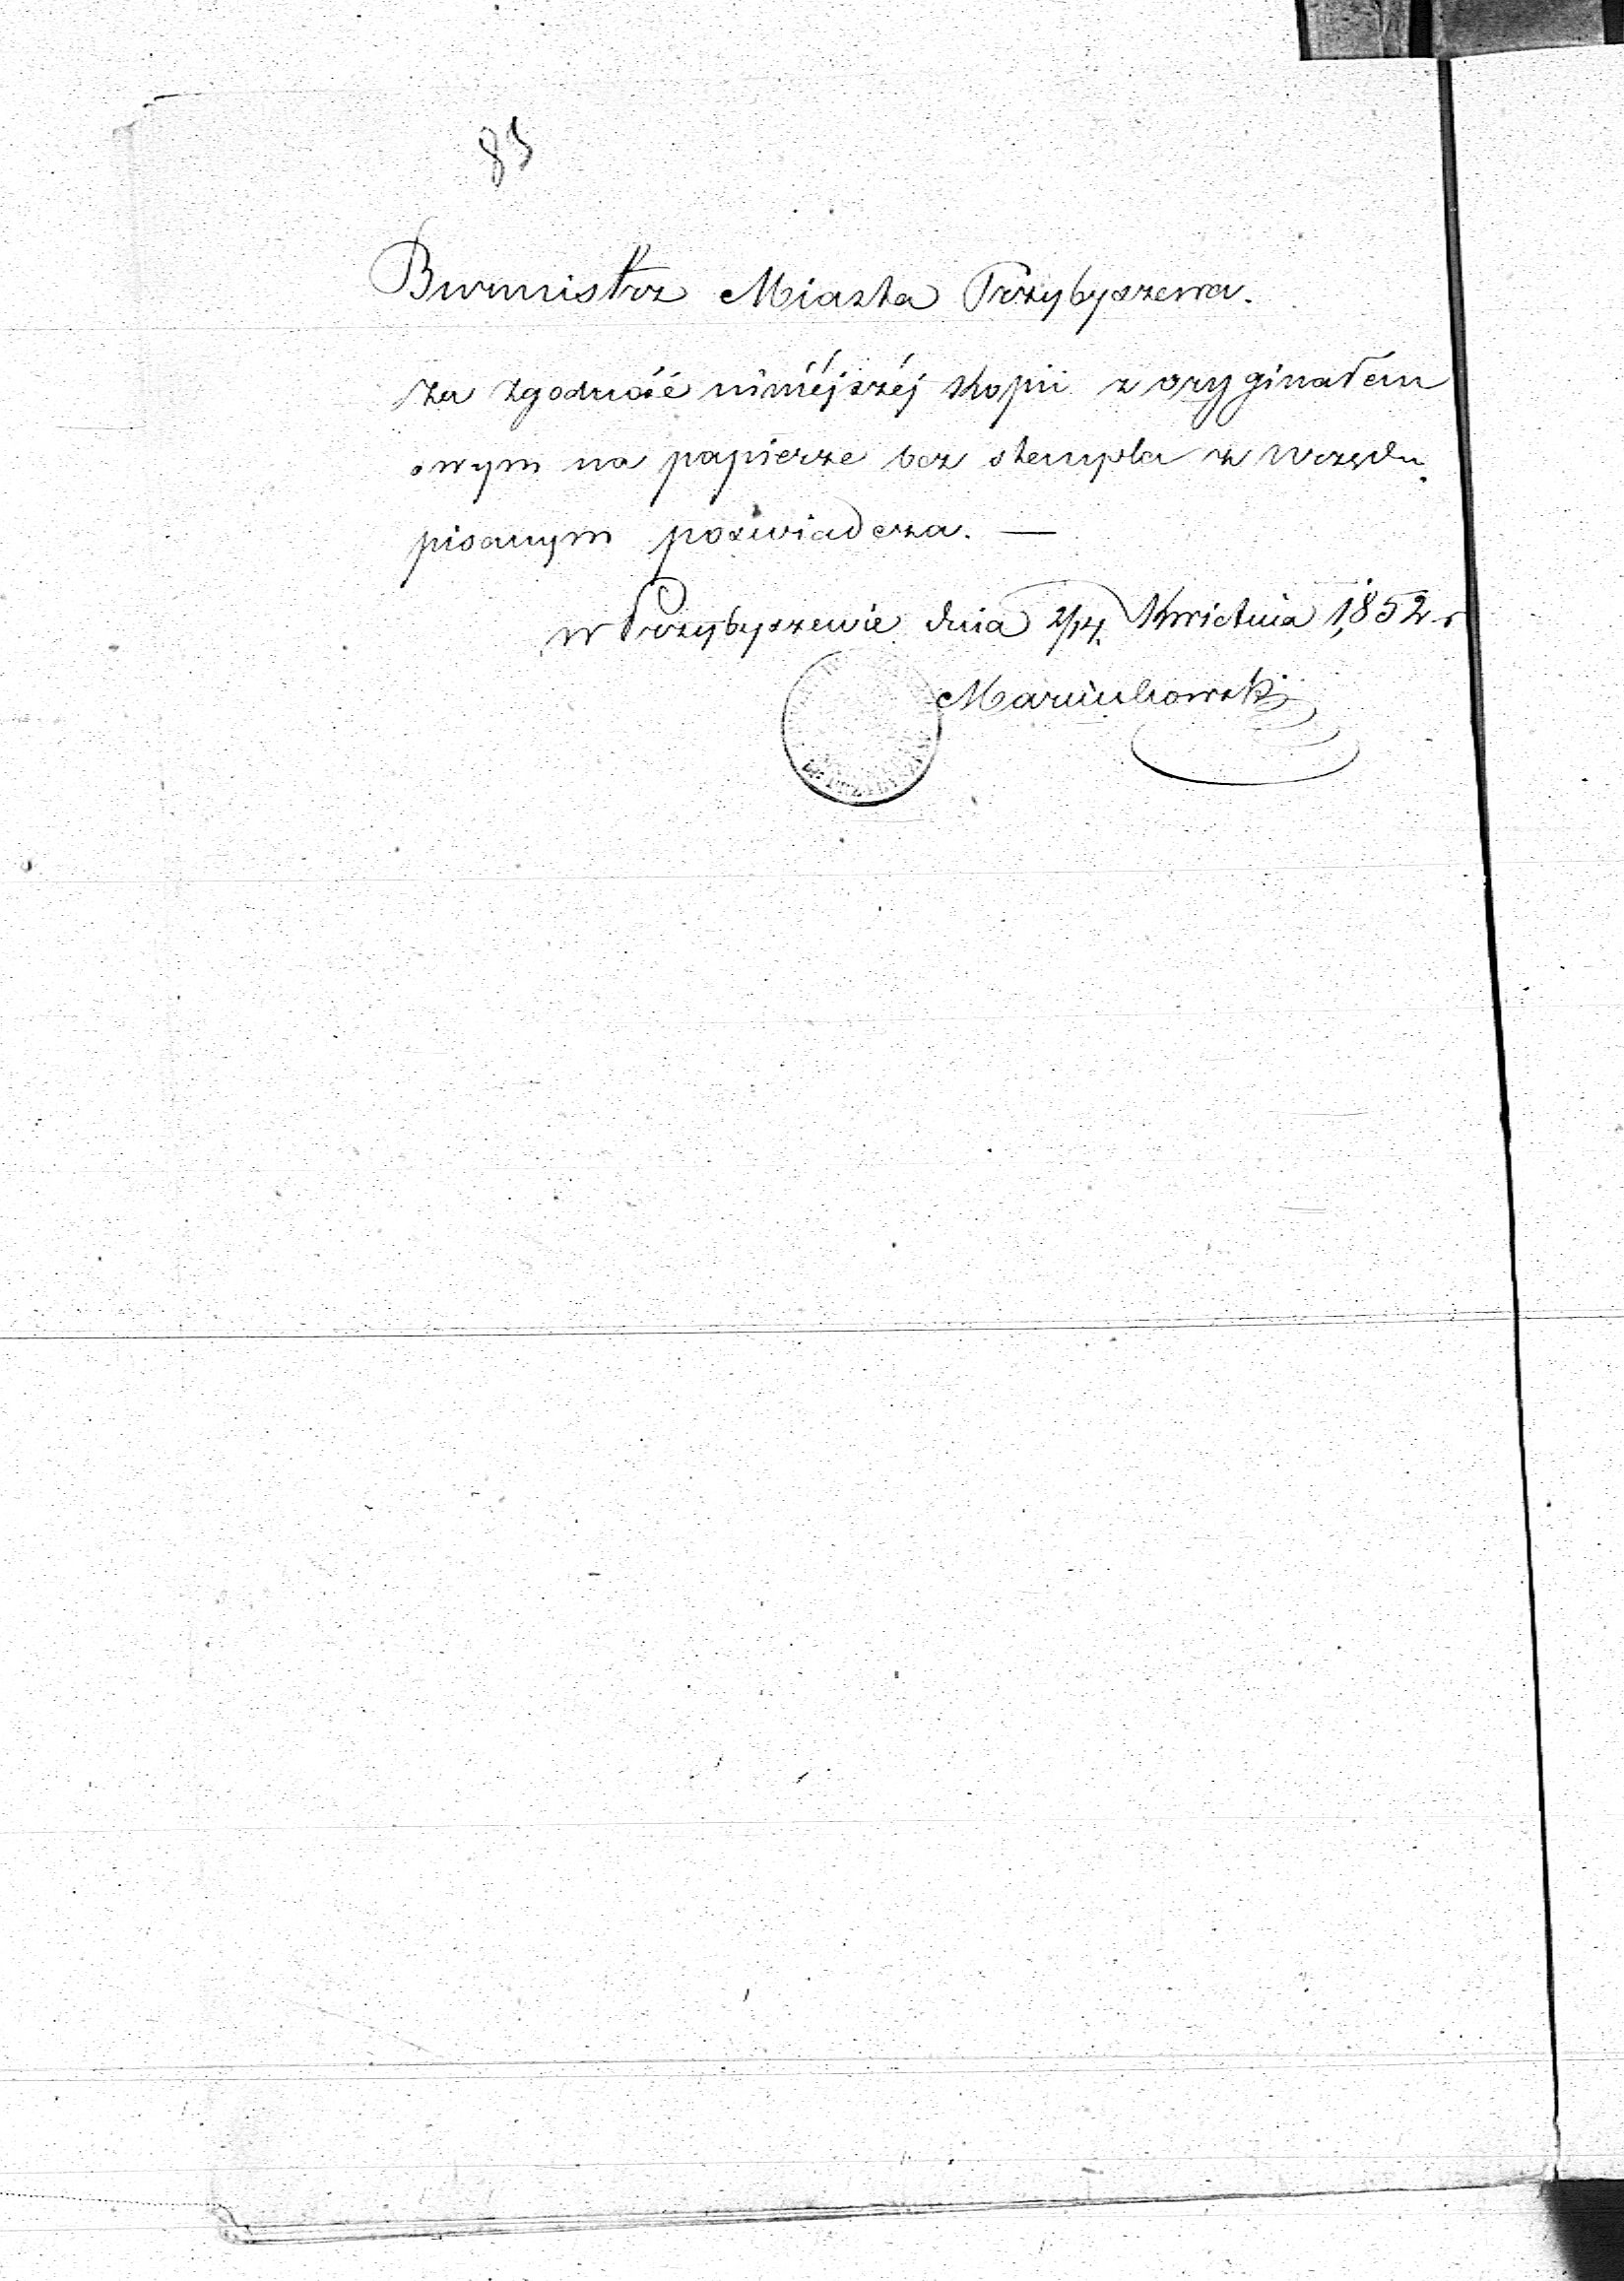 85
Burmistrz Miasta Przybyszewa.
Za zgodność niniéjszéj kopii z oryginałem
owym na papierze bez stempla z Urzędu
pisanym poświadcza. —
w Przybyszewie dnia 2/14 Kwietnia 1852 r